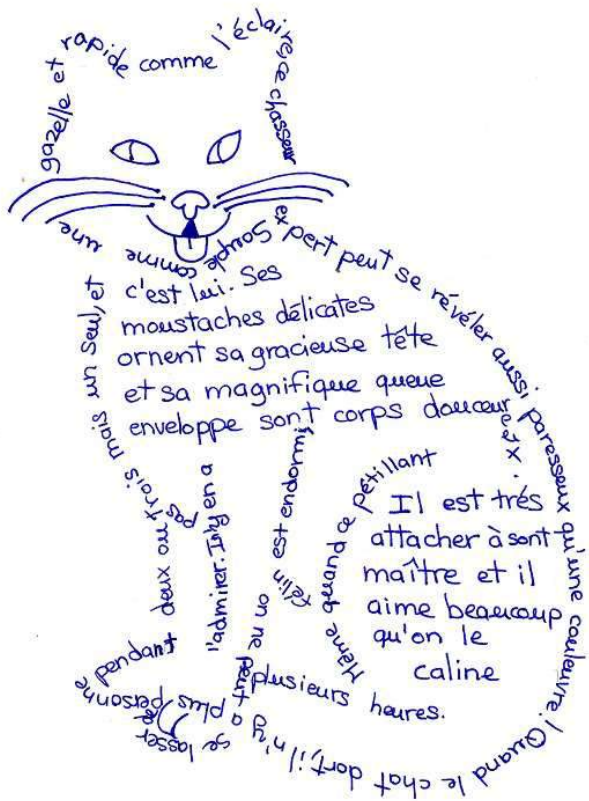 Souple comme une
gazelle et rapide comme l'éclaire,ce chasseur
expert peut se révéler aussi paresseux qu'une couleuvre! Quand le chat dort, il n'y a plus personne pendant
plusieurs heures.
Même quand ce pétillant
félin est endormi,
on ne peut
se lasser de
l'admirer. Il n'y en a
pas
deux ou trois mais un seul, et
c'est lui. Ses
moustaches délicates
ornent sa gracieuse tête
et sa magnifique queue
enveloppe sont corps douceureux.
Il est trés
attacher à sont
maître et il
aime beaucoup
qu'on le
caline